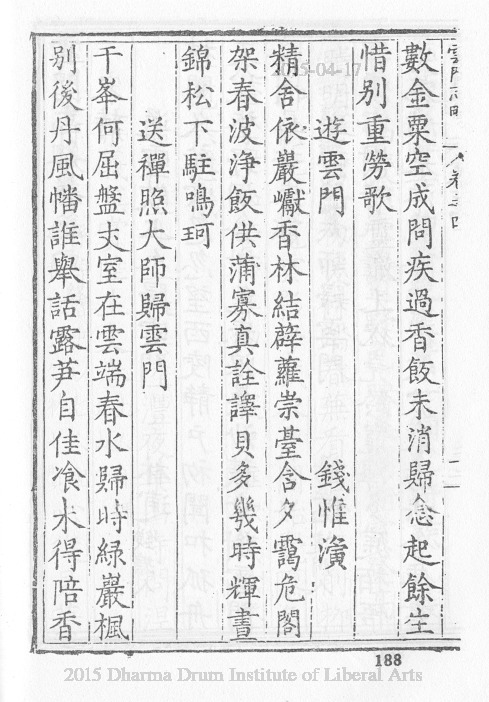 雲門志略 卷之四
數金粟空成問疾過香飯未消歸念起餘生
惜別重勞歌
遊雲門 錢惟演
精舍依巖巘香林結薜蘿崇臺含夕靄危閣
架春波淨飯供蒲寡真詮譯貝多幾時輝晝
錦松下駐鳴珂
送禪照大師歸雲門
千峯何屈盤丈室在雲端春水歸時綠巖楓
別後丹風幡誰舉話露茅自佳飡水得陪香
188
2015-04-17
2015 Dharma Drum Institute of Liberal Arts